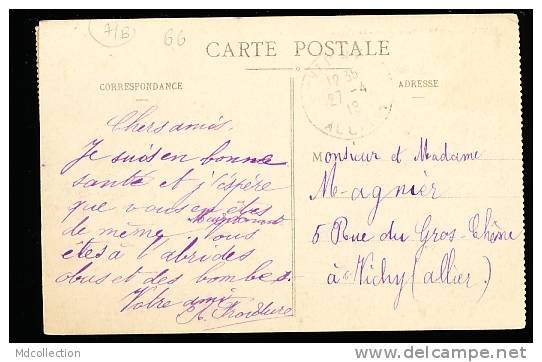 7/B
66
CARTE POSTALE
CORRESPONDANCE
ADRESSE
12 35
27 - 4
18
ALL
Chers amis.
Je suis en bonne
santé et j'éspère
que vous en êtes
de même. Maintenant Vous
êtes à l'abri des
obus et des bombes.
Votre ami
A. Froidure
Monsieur et Madame
Magnier
5 Rue du Gros Chêne
à Vichy (allier.)
Mdcollection
http://mdcollection.delcampe.net